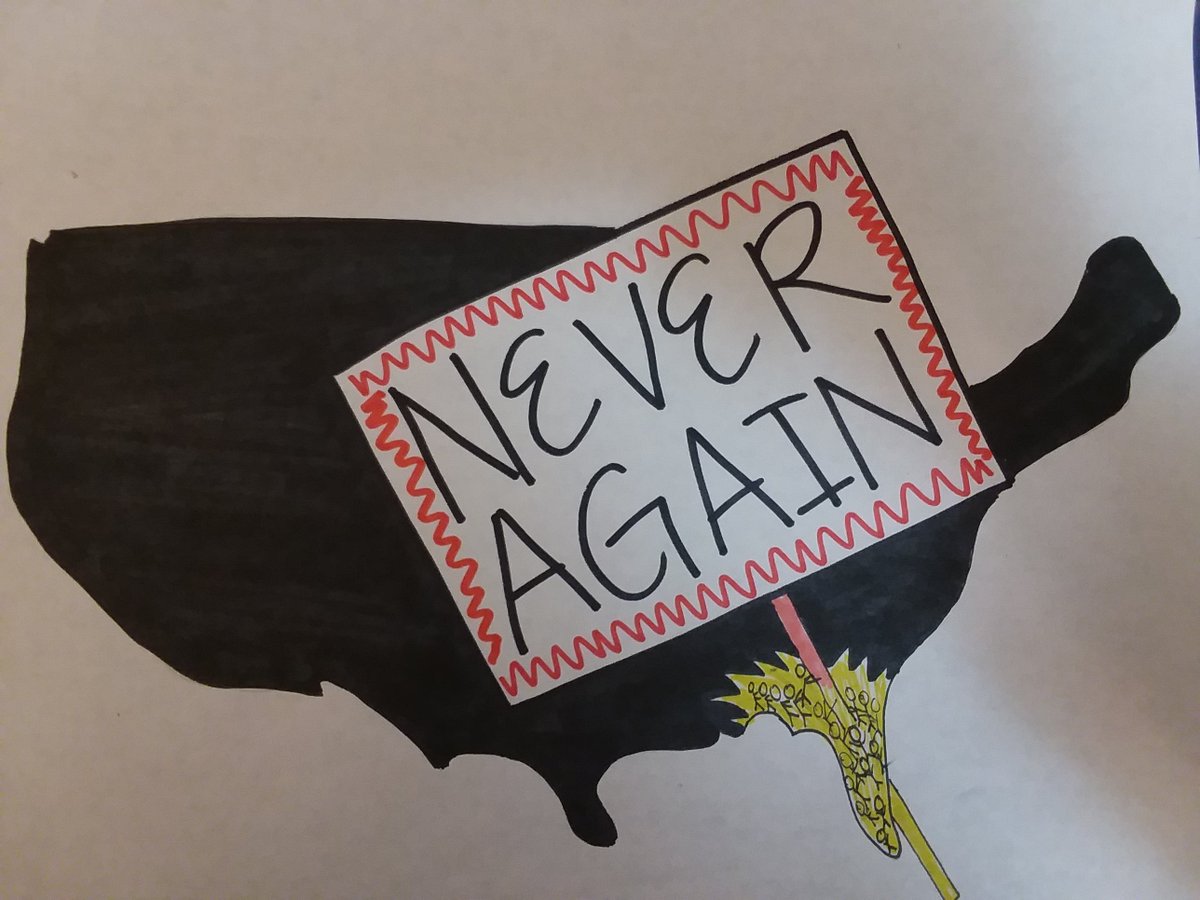 NEVER
AGAIN